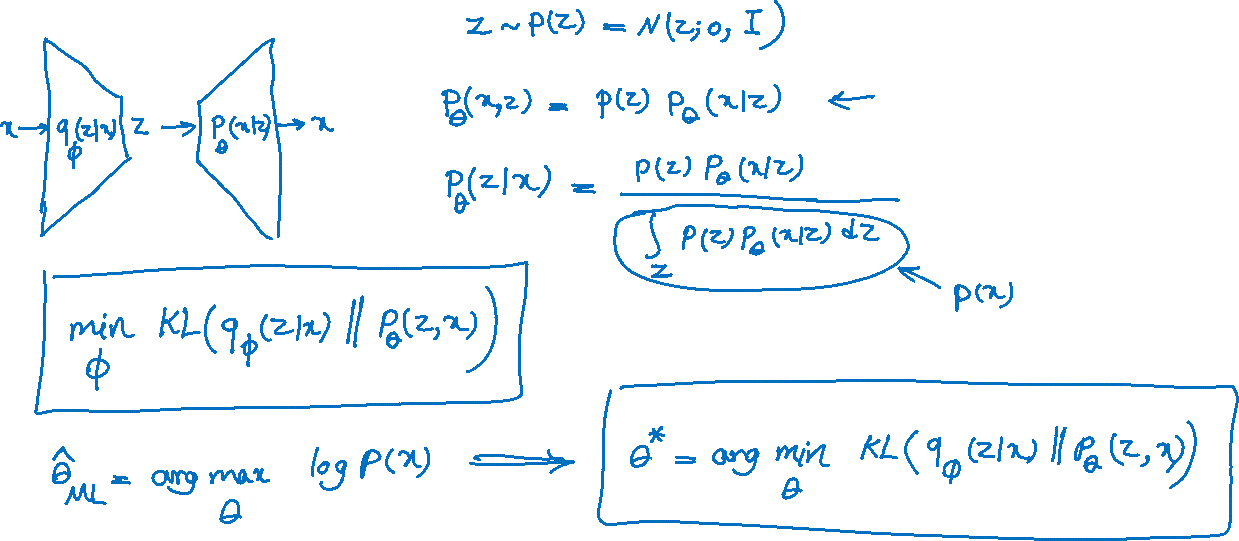 z ~ p(z) = N(z; 0, I)
x → q_ϕ(z|x) z → p_θ(x|z) → x
p_θ(x,z) = p(z) p_θ(x|z) ←
p_θ(z|x) = p(z) p_θ(x|z) / ∫_z p(z) p_θ(x|z) dz
p(x)
min_ϕ KL(q_ϕ(z|x) || p_θ(z,x))
θ̂_ML = arg max_θ log p(x) ⟹ θ* = arg min_θ KL(q_ϕ(z|x) || p_θ(z,x))